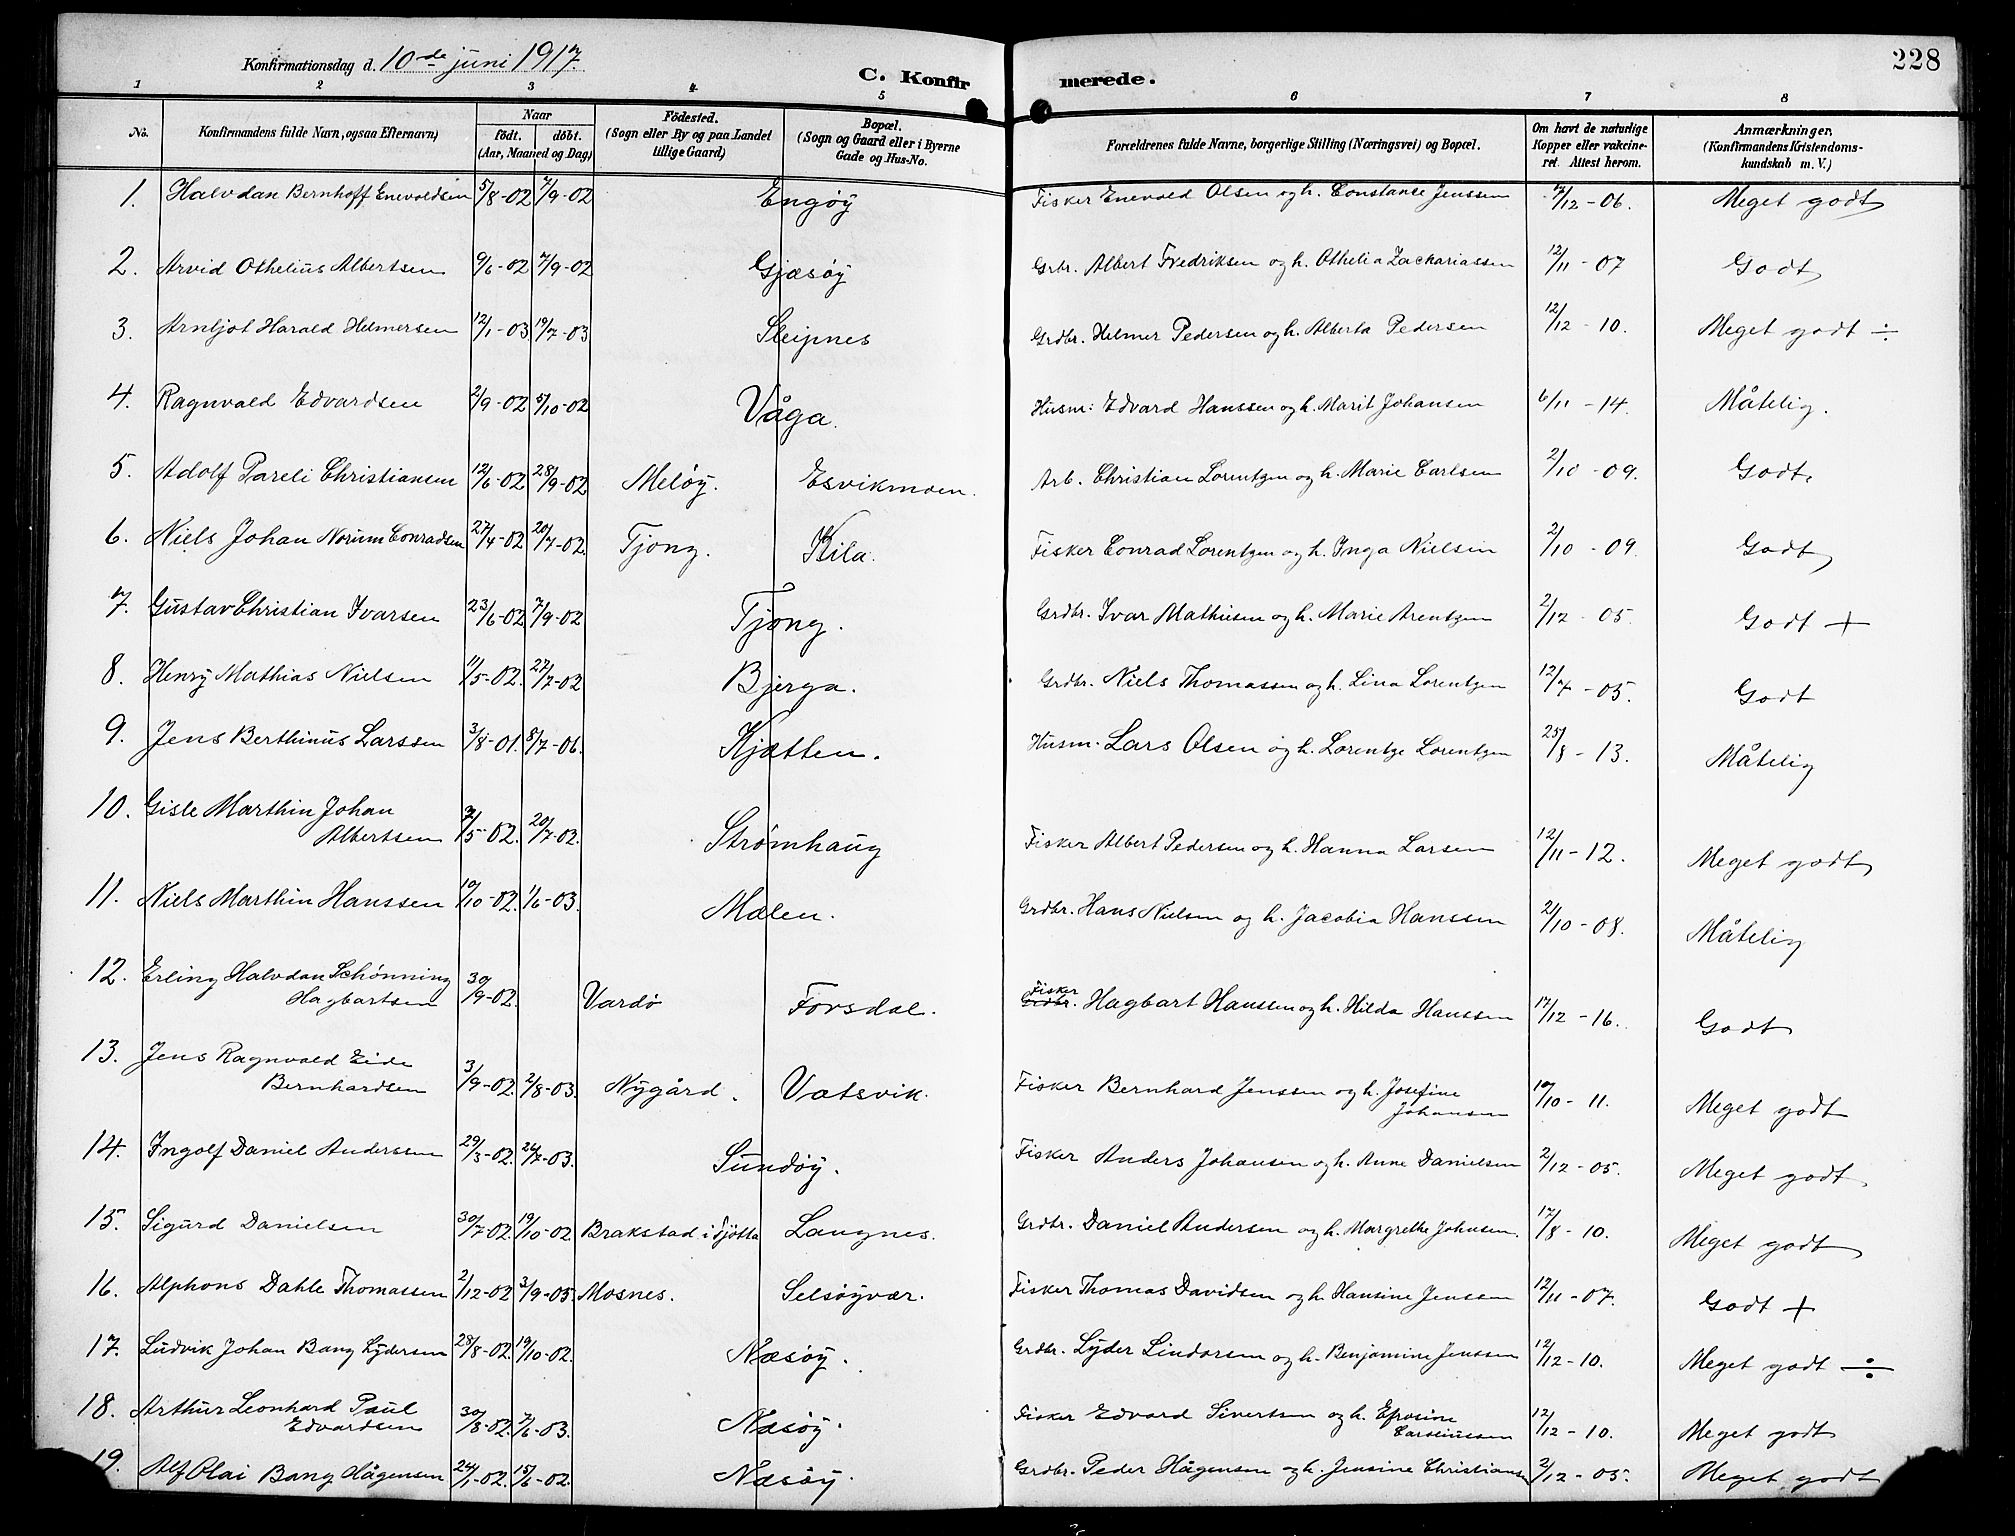 Konfirmationsdag d. 10de juni 1917. C. Konfirmerede. 228
1 2 3 4 5 6 7 8
No.
Konfirmandens fulde Navn, ogsaa Efternavn)
Naar
födt. döbt.
(Aar, Maaned og Dag)
Födested.
(Sogn eller By og paa Landet
tillige Gaard)
Bopæl.
(Sogn og Gaard eller i Byerne
Gade og Hus-No.
Forældrenes fulde Navne, borgerlige Stilling (Næringsvei) og Bopæl.
Om havt de naturlige
Kopper eller vakcine-
ret. Attest herom.
Anmærkninger,
(Konfirmandens Kristendoms-
kundskab m. V.)
1. Halvdan Bernhoff Enevoldsen 5/8-02 7/9-02 Engöy Fisker Enevold Olsen og h. Constance Jenssen /12-06. Meget godt
2. Arvid Othelius Albertsen 9/6-02 7/9-02 Gjæsöy Grbr. Albert Fredriksen og h. Othelia Zachariassen 12/11-07 Godt
3. Arnljot Harald Helmersen 12/1-03 19/7-03 Sleipnes Grdbr. Helmer Pedersen og h. Alberta Pedersen 12/12-10. Meget godt ÷
4. Ragnvald Edvardsen 2/9-02 5/10-02 Våga. Husm: Edvard Hanssen og h. Marit Johansen 6/11-14. Måtelig.
5. Adolf Pareli Christiansen 12/6-02 28/9-02 Melöy. Esvikmoen. Arb. Christian Lorentzen og h. Marie Carlsen 2/10-09. Godt,
6. Niels Johan Norum Conradsen 27/4-02 20/7-02. Tjong. Kila. Fisker Conrad Lorentzen og h. Inga Nielsen 2/10-09. Godt
7. Gustav Christian Ivarsen 23/6-02 7/9-02. Tjong. Grdbr. Ivar Mathisen og h. Marie Arentzen 2/12-05. Godt +
8. Henry Mathias Nielsen 11/5-02. 27/7-02 Bjerga. Grdbr. Niels Thomassen og h. Lina Lorentzen 12/7-05. Godt
9. Jens Berthinus Larssen 3/8-01. 8/7-06. Kjætten. Husm. Lars Olsen og h. Lorentze Lorentzen 25/8-13. Måtelig
10. Gisle Marthin Johan
Albertsen 7/5-02. 20/7-02. Strømhaug Fisker Albert Pedersen og h. Hanna Larsen 12/11-12. Meget godt
11. Niels Marthin Hanssen 10/10-02. 1/6-03. Mælen. Grdbr. Hans Nielsen og h. Jacobia Hanssen 21/10-08. Måtelig
12. Erling Halvdan Schönning
Hagbartsen 30/9-02. Vardö Forsdal. Fisker Hagbart Hanssen og h. Hilda Hanssen 17/12-16. Godt
13. Jens Ragnvald Eide
Bernhardsen 3/9-02. 2/8-03. Nygård. Vatsvik. Fisker Bernhard Jenssen og h. Josefine
Johansen 10/10-11. Meget godt
14. Ingolf Daniel Anderssen 29/3-02. 26/7-03. Sundöy. Fisker Anders Johansen og h. Anne Danielsen 2/12-05. Meget godt
15. Sigurd Danielsen 30/7-02. 19/10-02. Brakstad i Tjötta Langnes. Grdbr. Daniel Andersen og h. Margrethe Johnsen. 17/8-10. Meget godt
16. Alphons Dahle Thomassen 2/12-02 3/9-05 Mosnes. Selsöyvær. Fisker Thomas Davidsen og h. Hansine Jenssen 12/11-07. Godt +
17. Ludvik Johan Bang Lydersen 28/8-02. 19/10-02. Næsöy. Grdbr. Lyder Lindorsen og h. Benjamine Jenssen 12/12-10. Meget godt ÷
18. Arthur Leonhard Paul
Edvardsen 30/8-02. 7/6-03. Næsöy. Fisker Edvard Sivertsen og h. Efrosine
Carsliussen 12/12-10. Meget godt
19. Alf Olai Bang Hågensen 24/1-02. 15/6-02. Næsöy. Grdbr. Peder Hågensen og h. Jensine Christiansen 2/12-05. Meget godt